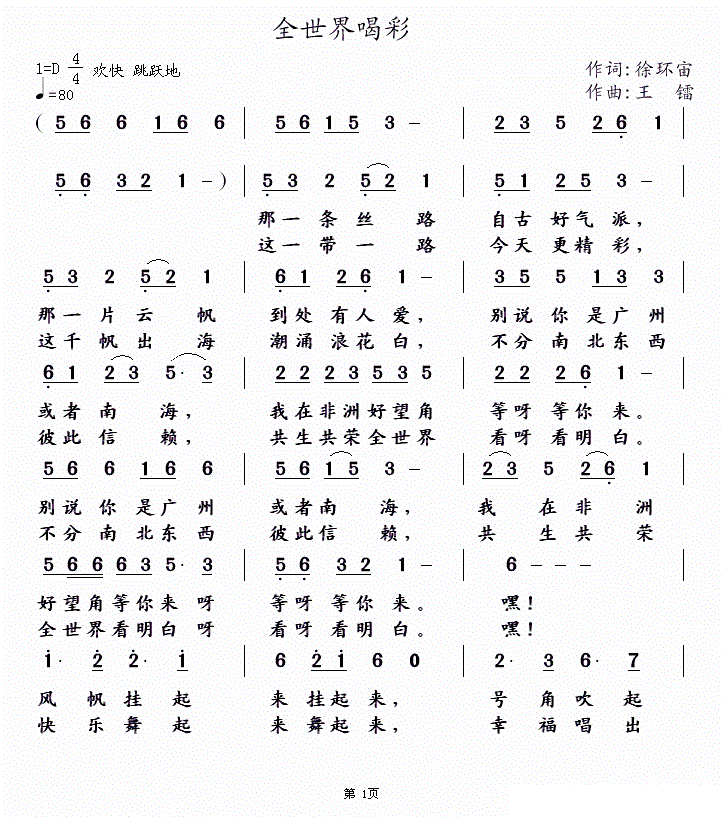 全世界喝彩
1=D 4/4 欢快 跳跃地
♩=80
作词:徐环宙
作曲:王 镭
( 5 6 6 1 6 6 | 5 6 1 5 3 – | 2 3 5 2 6 1 |
5 6 3 2 1 – ) | 5 3 2 5 2 1 | 5 1 2 5 3 – |
那一条丝 路 自古 好气 派,
这一带一 路 今天 更精 彩,
5 3 2 5 2 1 | 6 1 2 6 1 – | 3 5 5 1 3 3 |
那一片云 帆 到处 有人 爱, 别说 你是广州
这千帆出 海 潮涌 浪花 白, 不分 南北东西
6 1 2 3 5· 3 | 2 2 2 3 5 3 5 | 2 2 2 6 1 – |
或者 南 海, 我在非洲好望角 等呀 等你 来。
彼此 信 赖, 共生共荣全世界 看呀 看明 白。
5 6 6 1 6 6 | 5 6 1 5 3 – | 2 3 5 2 6 1 |
别说 你 是广州 或者南 海, 我 在 非 洲
不分 南 北东西 彼此信 赖, 共 生 共 荣
5 6 6 6 3 5· 3 | 5 6 3 2 1 – | 6 – – – |
好望角等你来 呀 等呀 等你 来。 嘿!
全世界看明白 呀 看呀 看明 白。 嘿!
1· 2 2· 1 | 6 2 1 6 0 | 2· 3 6· 7 |
风 帆 挂 起 来 挂起 来, 号 角 吹 起
快 乐 舞 起 来 舞起 来, 幸 福 唱 出
第 1页